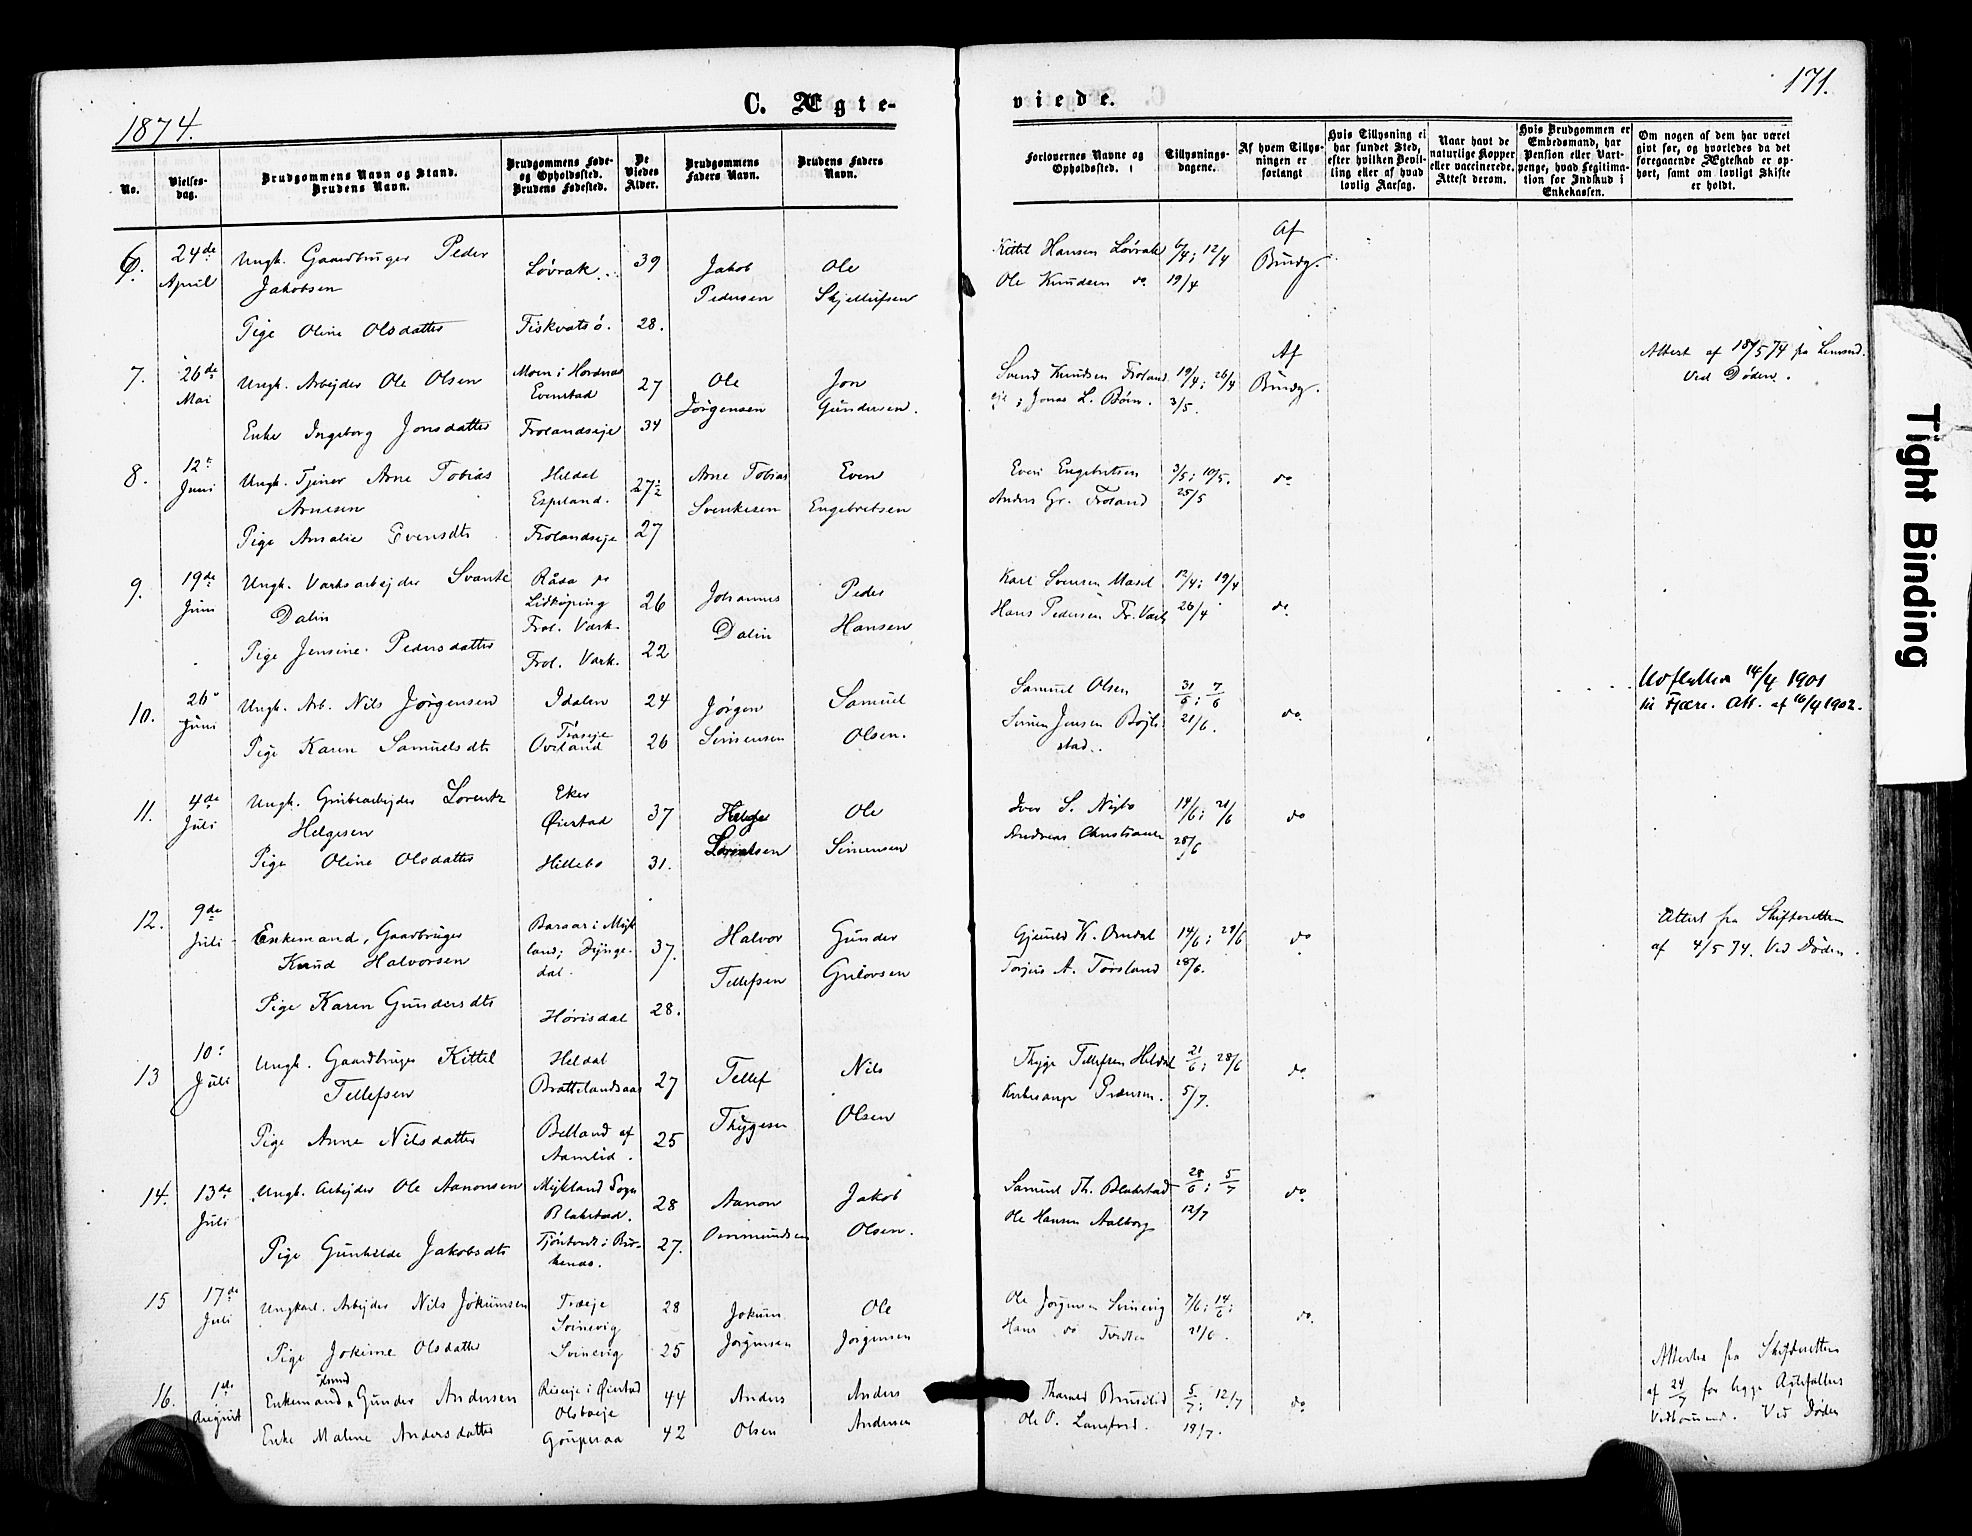 1874.
C. Ægte-
viede.
171.
No.
Vielses-
dag.
Brudgommens Navn og Stand.
Brudens Navn.
Brudgommens Føde-
og Opholdssted.
Brudens Fødested.
De
Viedes
Alder.
Brudgommens
Faders Navn.
Brudens Faders
Navn.
Forlovernes Navne og
Opholdssted.
Tillysnings-
dagene.
Af hvem Tillys-
ningen er
forlangt
Hvis Tillysning ei
har fundet Sted,
efter hvilken Bevil-
ling eller af hvad
lovlig Aarsag.
Naar havt de
naturlige Kopper
eller vaccinerede.
Attest derom.
Hvis Brudgommen er
Embedsmand, har
Pension eller Vart-
penge, hvad Legitima-
tion for Indskud i
Enkekassen.
Om nogen af dem har været
gift før, og hvorledes da det
foregaaende Ægteskab er op-
hørt, samt om lovligt Skifte
er holdt.
6. 24de April Ungk. Gaardbruger Peder Løvrak 39 Jakob Ole Kittel Hansen Løvrak 6/4; 12/4 Af
Jakobsen Pedersen Skjellufsen Ole Knudsen do 19/4 Brudg.
Pige Oline Olsdatter Fiskvatsö. 28.
7. 26de Mai Ungk. Arbejder Ole Olsen Moen i Hordnæs Evenstad 27 Ole Jon Svend Knudsen Froland 19/4; 26/4 Af Brudg. Attest af 18/5 74 fra
Jörgensen Gundersen. eje; Jonas L. Böin. 3/5. Ved Döden.
Enke Ingeborg Jonsdatter Frolandseje 34
8. 12te Juni Ungk. Tjener Arne Tobias Heldal 27½ Arne Tobias Even Even Engebretsen 3/5; 10/5. do
Arnesen Espeland. Svenkesen Engebretsen Anders Gr. Froland 25/5
Pige Amalie Evensdtr Frolandseje 27
9. 19de Juni Ungk. Varksarbejder Svante Råda Lidköping 26 Johannes Peder Karl Svensen 12/4; 19/4 do
Dalin Frol. Værk. Dalin Hansen Hans Pedersen Fr. Værk 26/4
Pige Jensine Pedersdatter Frol. Værk. 22
10. 26de Juni Ungk. Arb. Nils Jörgensen Idalen 24 Jörgen Samuel Samuel Olsen 31/5; 7/6 do. Udflyttede 14/4 1901
Pige Karen Samuelsdtr Træeje Oveland 26 Simensen Olsen. Simen Jensen Böjle- 21/6. til Fjære. Att. af 16/4 1902.
stad.
11. 4de Juli Ungk. Grubearbejder Lorentz Eker Öiestad 37 Helge Ole Iver S. 14/6; 21/6 do
Helgesen Lorentsen Simensen Andreas Christiansen 28/6
Pige Oline Olsdatter Hillebo 31.
12. 9de Juli Enkemand, Gaardbruger Baraas i Myk- 37. Halvor Gunder Gjeruld K. Omdal 14/6; 24/6 do Attest fra Skifteretten
Knud Halvorsen land; Dynge- Tellefsen Gulovsen Torjus A. Torsland 28/6. af 4/5 74. Ved Döden.
dal.
Pige Karen Gundersdtr Hörisdal 28.
13 10de Juli Ungk. Gaardbruger Kittel Heldal 27 Tellef Nils Thyge Tellefsen Heldal 21/6; 28/6 do
Tellefsen Brattelandsaas Thygesen Olsen 5/7.
Pige Anne Nilsdatter Belland af 25
Aamlid.
14. 13de Juli Ungk. Arbejder Ole Aanonsen Mykland Sogn 28 Aanon Jakob Samuel Th. Blakstad 28/6; 5/7 do
Blakstad. Ommundsen Olsen. Ole Hansen Aalborg 12/7
Pige Gunhilde Jakobsdtr Tjöntvedt i Bir- 27.
kenæs.
15 17de Juli Ungkarl. Arbejder Nils Jokumsen Træeje 28 Jokum Ole Ole Jörgensen Svinevig 7/6; 14/6; do.
Svinevig Jörgensen Jörgensen Hans do Tvedten 21/6.
Pige Jokime Olsdatter Svinevig 25
16. 1ste August Enkemand Gunder Andersen Riseeje i Öiestad 44 Anders Anders Tharald Bruselid 5/7; 12/7 do Attester fra Skifteretten
Olsbueje Olsen Andersen Ole O. Langford. 19/7. af 24/7 for begge Ægtefæller
Enke Maline Andersdatter Gouperaa 42 Vedkommende. Ved Döden
Tight Binding